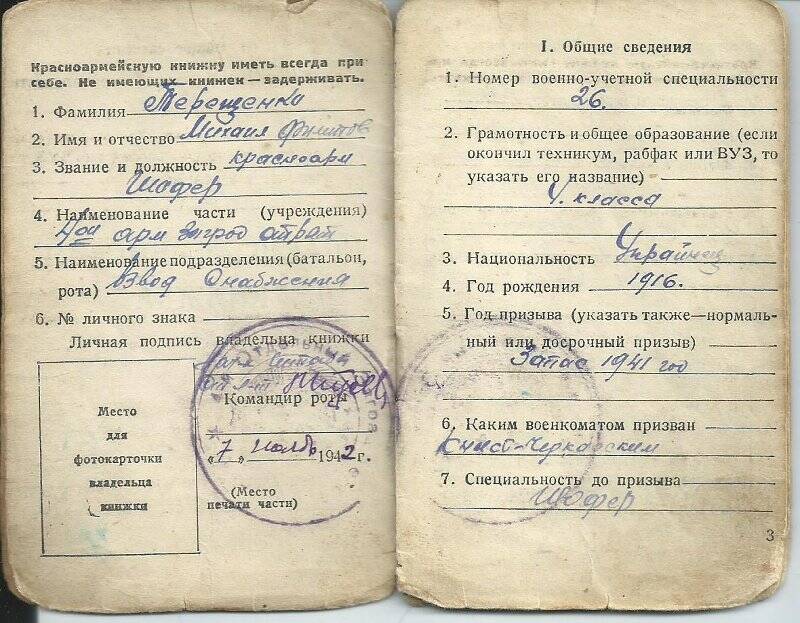 Красноармейскую книжку иметь всегда при
себе. Не имеющих книжек—задерживать.
1. Фамилия Терещенко
2. Имя и отчество Михаил
3. Звание и должность красноарм
Шофер
4. Наименование части (учреждения)
4ой арм загрод отрят
5. Наименование подразделения (батальон,
рота) Взвод Снабжения
6. № личного знака
Личная подпись владельца книжки
Командир роты
„7„ ноябрь 1942 г.
Место
для
фотокарточки
владельца
книжки
(Место
печати части)
I. Общие сведения
1. Номер военно-учетной специальности
26.
2. Грамотность и общее образование (если
окончил техникум, рабфак или ВУЗ, то
указать его название)
4. класса
3. Национальность Украинец
4. Год рождения 1916.
5. Год призыва (указать также—нормаль-
ный или досрочный призыв)
Запас 1941 год
6. Каким военкоматом призван
7. Специальность до призыва
Шофер
3